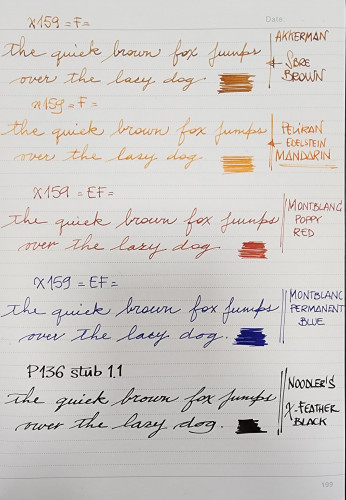 X159 =F=
Date:
the quick brown fox jumps
over the lazy dog.
AKKERMAN
SBRE
BROWN
X159 =F=
the quick brown fox jumps
over the lazy dog.
PELIKAN
EDELSTEIN
MANDARIN
X159 =EF=
the quick brown fox jumps
over the lazy dog
MONTBLANC
POPPY
RED
X159 =EF=
the quick brown fox jumps
over the lazy dog.
MONTBLANC
PERMANENT
BLUE
P136 stub 1.1
the quick brown fox jumps
over the lazy dog.
NOODLER'S
X-FEATHER
BLACK